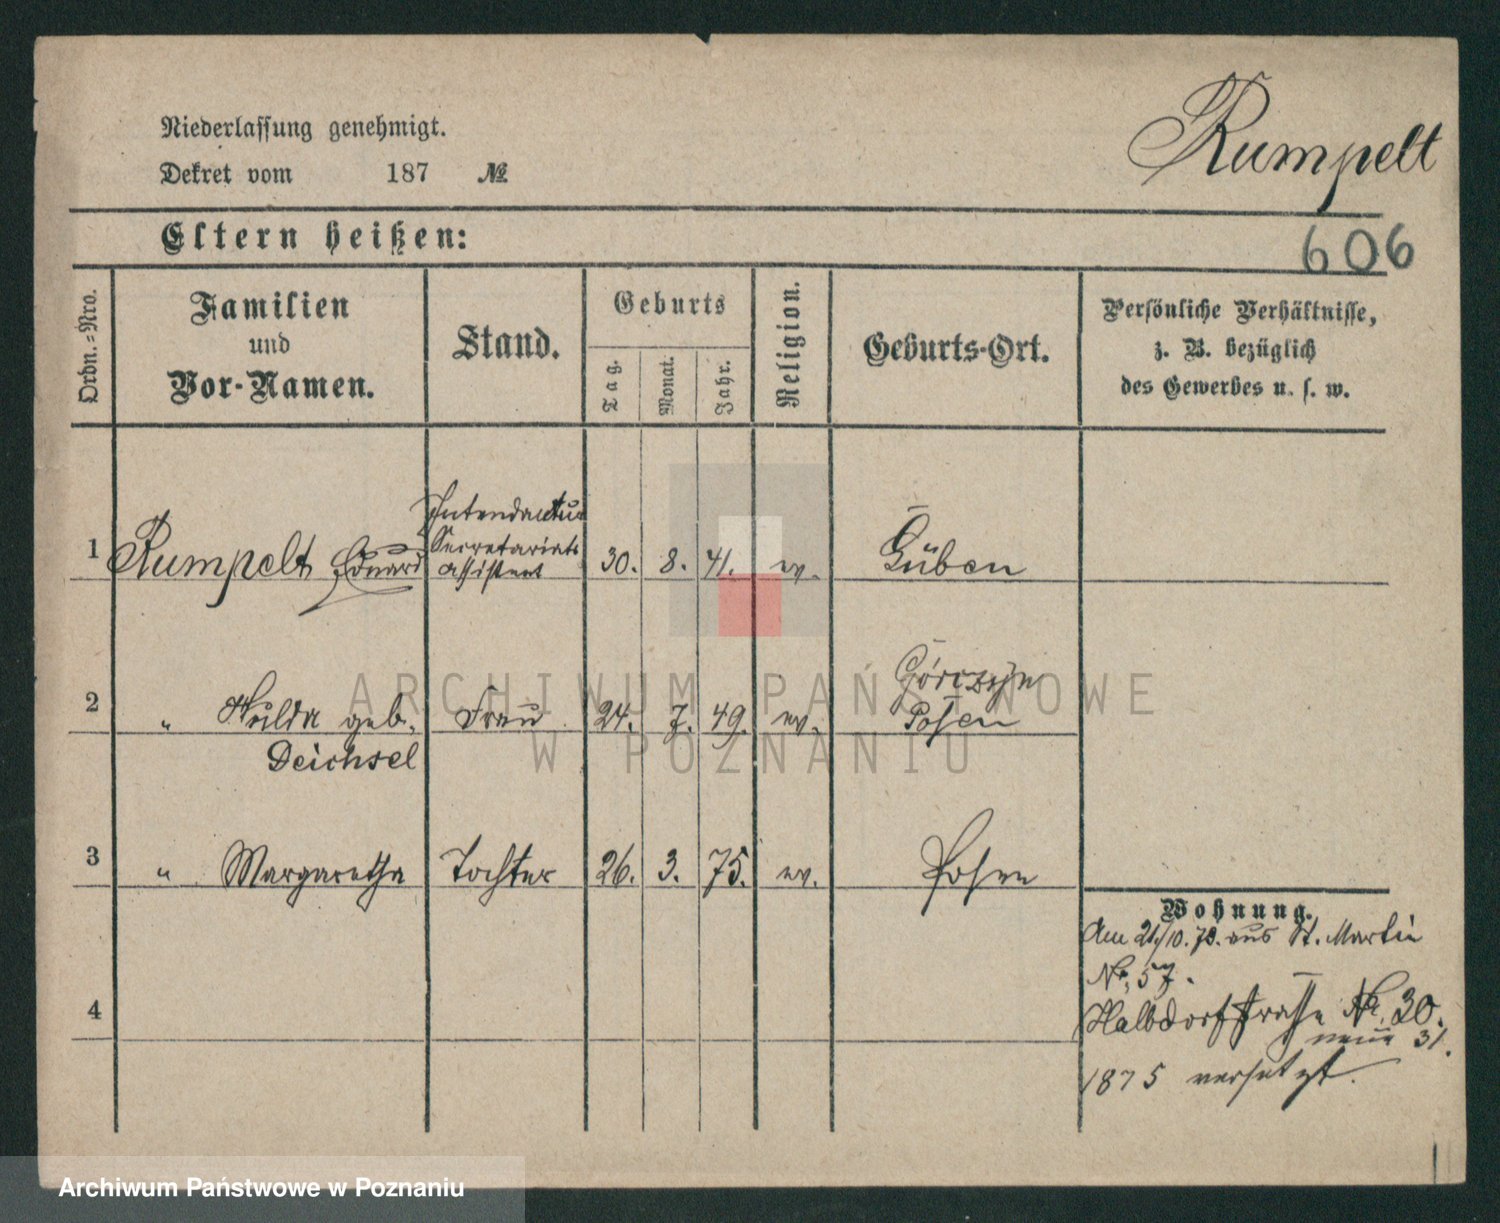 Rumpelt
Niederlassung genehmigt.
Dekret vom 187 №
Eltern heißen:
606
Ordn.-Nro.
Familien
und
Vor-Namen.
Stand.
Geburts
Tag.
Monat.
Jahr.
Religion.
Geburts-Ort.
Persönliche Verhältnisse,
z. B. bezüglich
des Gewerbes u. s. w.
Intendantur
Secretariats
1 Rumpelt Eduard assistent 30. 8. 41. ev. Güben
Górczyn
2 " Hulda geb. Frau 24. 7. 49. ev. Posen
Deichsel
3 " Margaretha Tochter 26. 3. 75. ev. Posen
4
Wohnung.
Am 21/10. 73. aus St. Martin
No. 57.
Halbdorfstrasse No. 30.
neue 31.
1875 versetzt.
ARCHIWUM PAŃSTWOWE
W POZNANIU
Archiwum Państwowe w Poznaniu